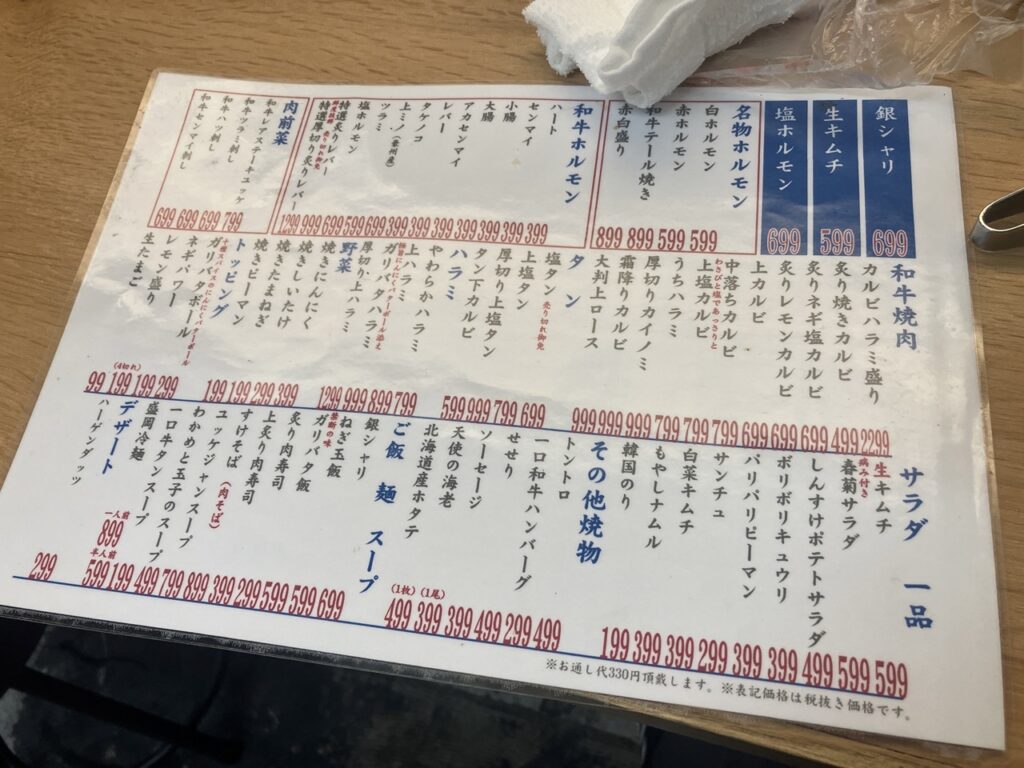 銀シャリ 699
生キムチ 599
塩ホルモン 699
名物ホルモン
白ホルモン 599
赤ホルモン 599
和牛テール焼き 899
赤白盛り 899
和牛ホルモン
ハート 399
センマイ 399
小腸 399
大腸 399
アカセンマイ 399
レバー 399
タケノコ 399
上ミノ(豪州産) 699
ツラミ 599
塩ホルモン 699
特選炙りレバー 999
特選厚切り炙りレバー 1299
肉前菜
和牛レアステーキユッケ 799
和牛ツラミ刺し 699
和牛ハツ刺し 699
和牛センマイ刺し 699
和牛焼肉
カルビハラミ盛り 2299
炙り焼きカルビ 499
炙りネギ塩カルビ 699
炙りレモンカルビ 699
上カルビ 699
中落ちカルビ 799
わさびと塩であっさりと
上塩カルビ 799
うちハラミ 799
厚切りカイノミ 999
霜降りカルビ 999
大判上ロース 999
タン
塩タン 売り切れ御免 699
上塩タン 799
厚切り上塩タン 999
タン下カルビ 599
ハラミ
やわらかハラミ 799
上ハラミ 899
ガリバタハラミ 999
厚切り上ハラミ 1299
野菜
焼きにんにく 399
焼きしいたけ 299
焼きたまねぎ 199
焼きピーマン 199
トッピング
ガリバタボール 299
ネギパワー 199
レモン盛り (4切れ) 199
生たまご 99
サラダ 一品
病み付き
生キムチ 599
春菊サラダ 599
しんすけポテトサラダ 499
ポリポリキュウリ 399
パリパリピーマン 399
サンチュ 299
白菜キムチ 399
もやしナムル 399
韓国のり 199
その他焼物
トントロ 499
一口和牛ハンバーグ 299
せせり 499
ソーセージ 399
天使の海老 (1尾) 399
北海道産ホタテ (1枚) 499
ご飯 麺 スープ
銀シャリ 699
ねぎ玉飯 599
禁断の味
ガリバタ飯 599
炙り肉寿司 299
上炙り肉寿司 399
すけそば(肉そば) 899
ユッケジャンスープ 799
わかめと玉子のスープ 499
一口牛タンスープ 199
盛岡冷麺 一人前 899 半人前 599
デザート
ハーゲンダッツ 299
※お通し代330円頂戴します。※表記価格は税抜き価格です。